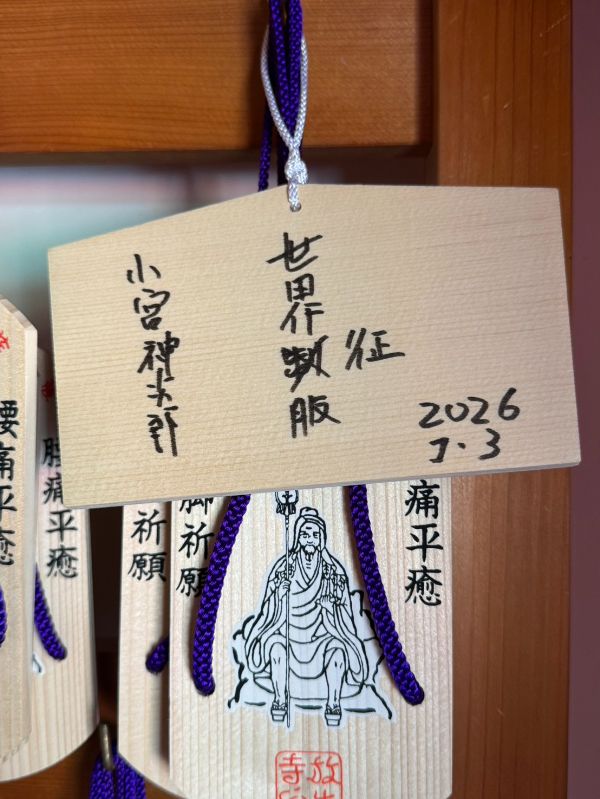 2026
1・3
征
世界作服
小宮神
痛平癒
脚祈願
祈願
痛平癒
腰痛平癒
放
寺